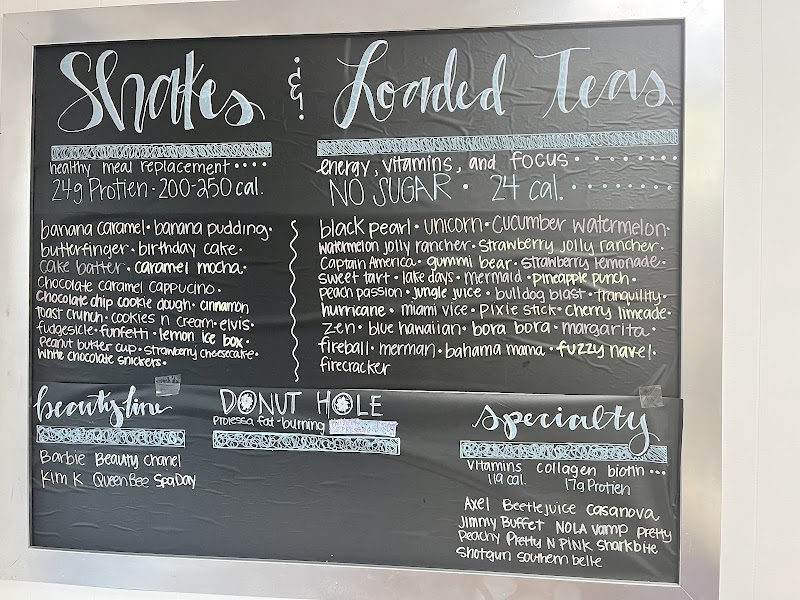 Shakes & Loaded Teas
healthy meal replacement ....
24g Protien · 200-250 cal.
energy, vitamins, and focus · · · · · · · ·
NO SUGAR · 24 cal. · · · · · · · ·
banana caramel · banana pudding ·
butterfinger · birthday cake ·
cake batter · caramel mocha ·
chocolate caramel cappucino ·
chocolate chip cookie dough · cinnamon
toast crunch · cookies n cream · elvis ·
fudgesicle · funfetti · lemon ice box ·
peanut butter cup · strawberry cheesecake ·
white chocolate snickers ·
black pearl · unicorn · cucumber watermelon ·
watermelon jolly rancher · strawberry jolly rancher ·
Captain America · gummi bear · strawberry lemonade ·
sweet tart · lake days · mermaid · pineapple punch ·
peach passion · jungle juice · bulldog blast · tranquility ·
hurricane · miami vice · pixie stick · cherry limeade ·
zen · blue hawaiian · bora bora · margarita ·
fireball · merman · bahama mama · fuzzy navel ·
firecracker
beauty line
Barbie Beauty chanel
Kim K Queen Bee Spa Day
DONUT HOLE
prolessa fat-burning
specialty
vitamins collagen biotin ...
119 cal. 17g Protien
Axel Beetlejuice casanova
Jimmy Buffet NOLA vamp pretty
Peachy Pretty N PINK sharkbite
shotgun southern belle